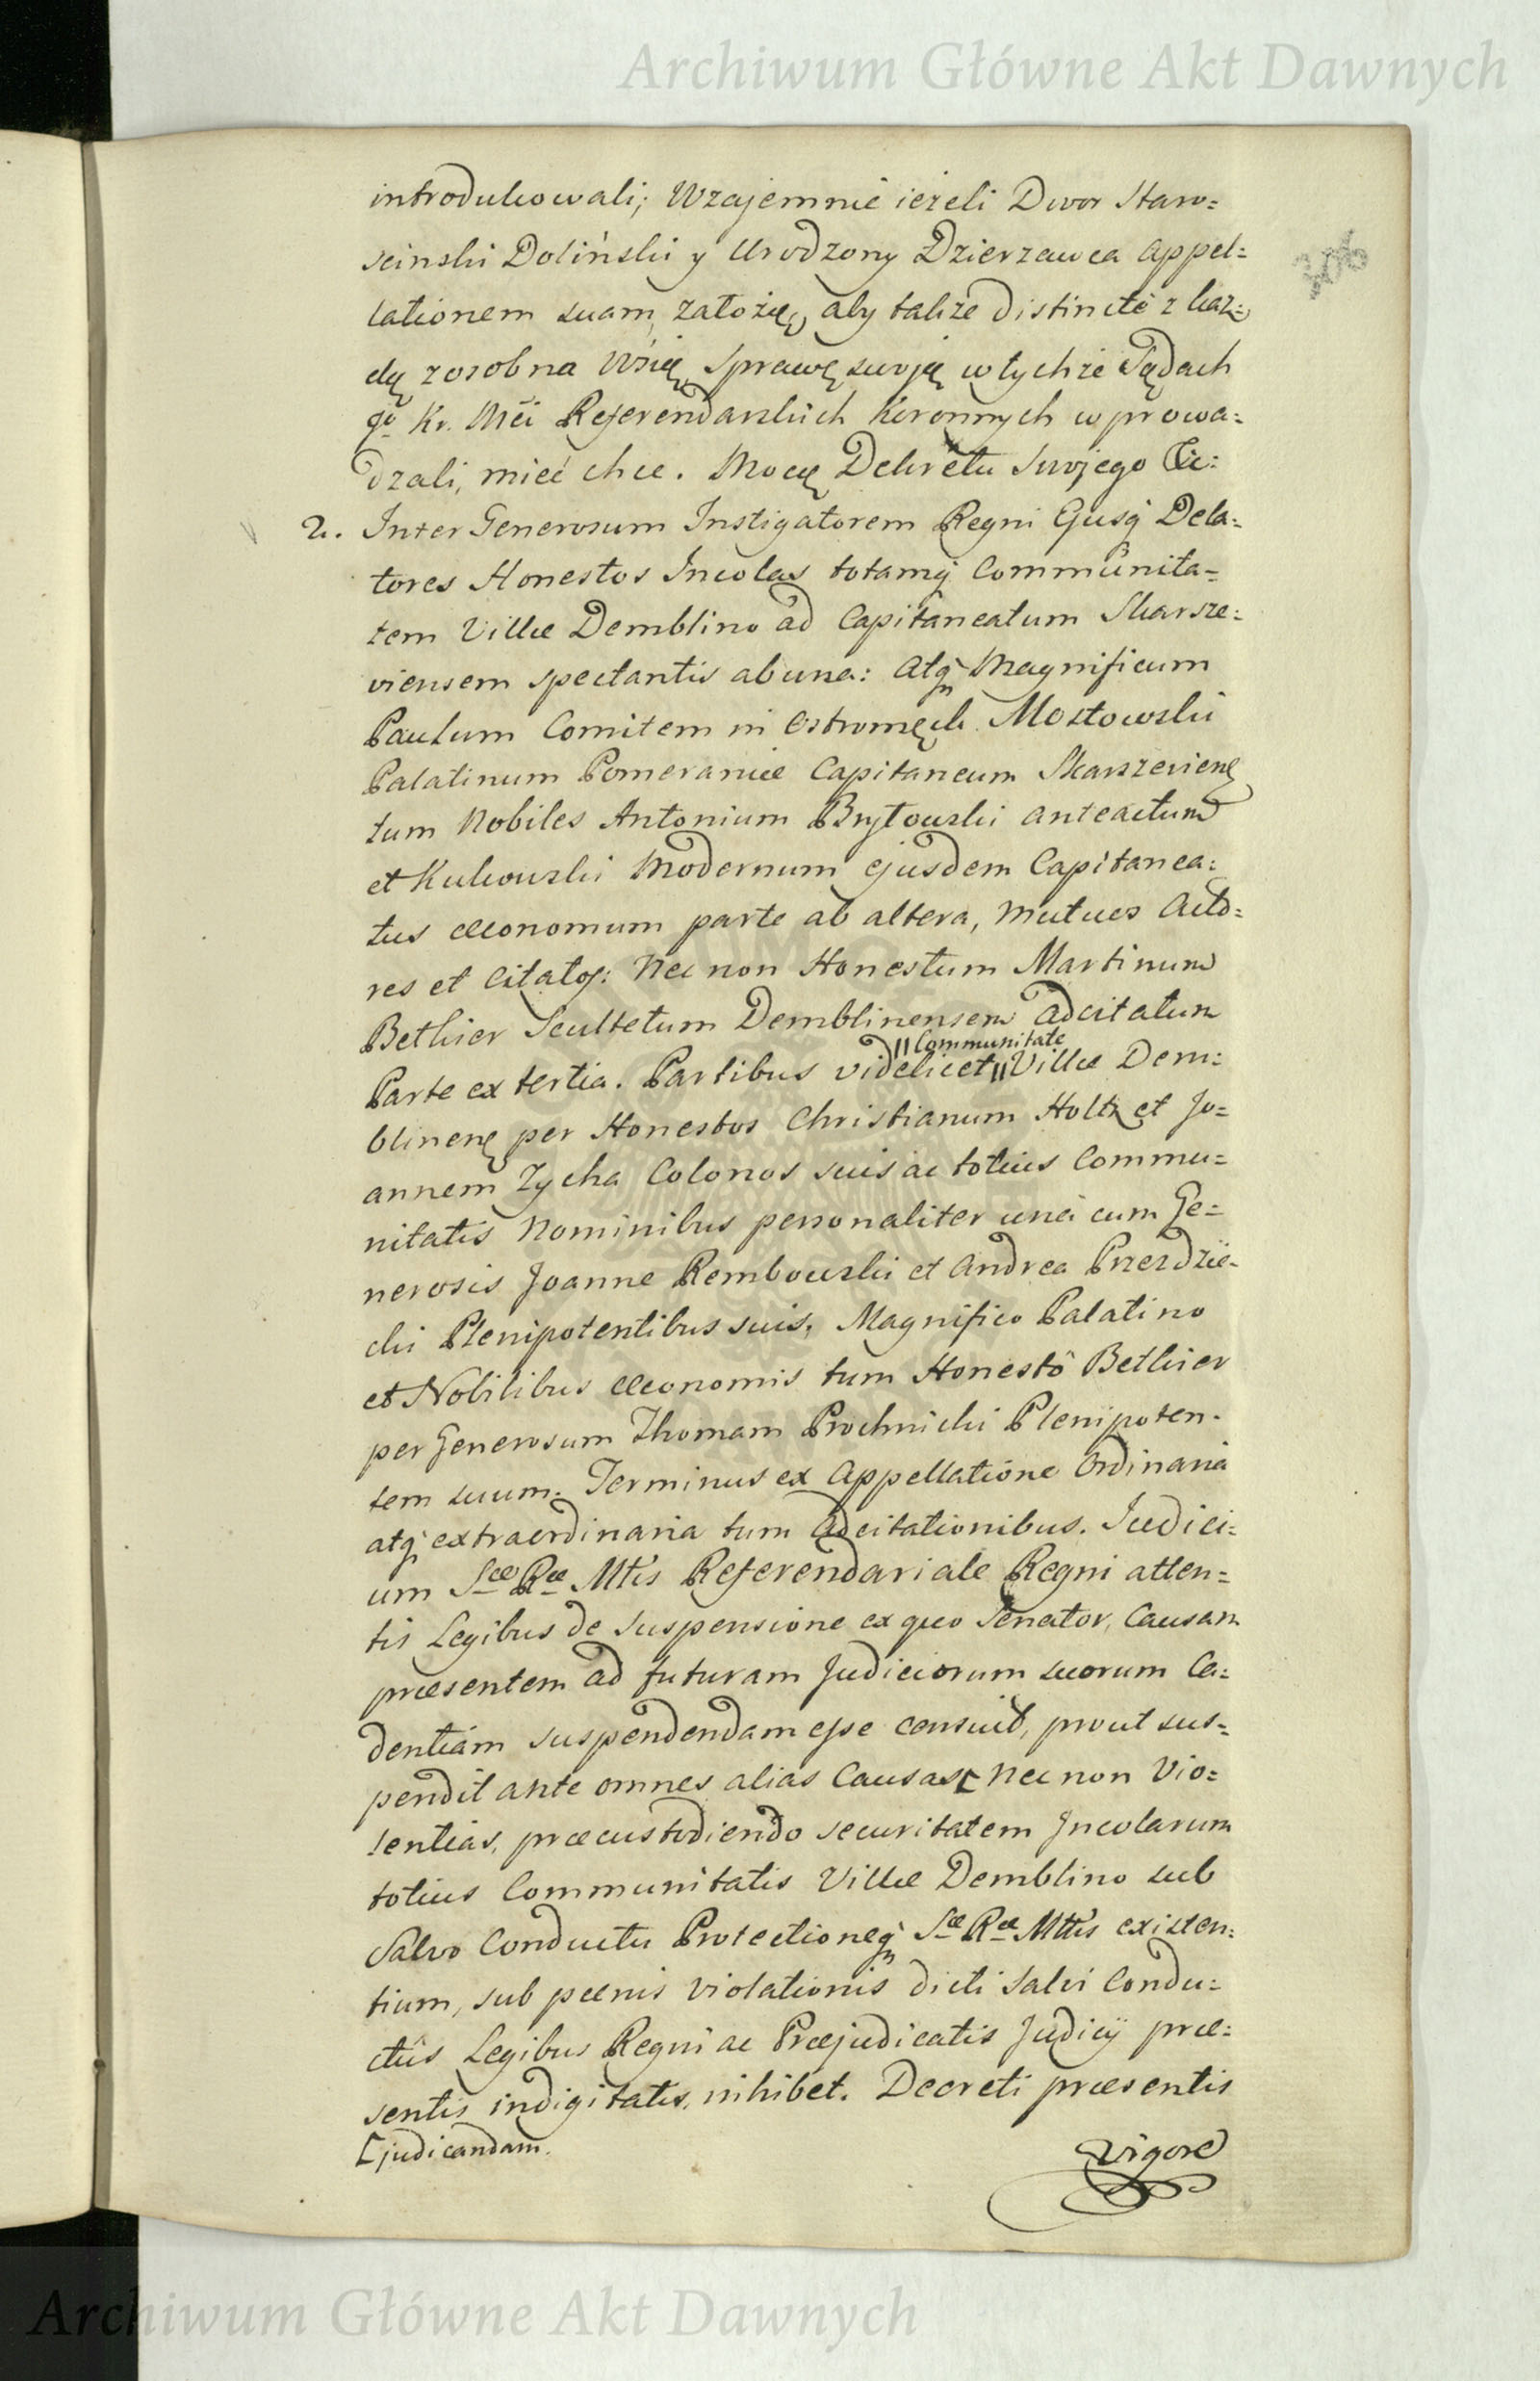 Archiwum Główne Akt Dawnych
introdukowali; Wzajemnie ieżeli Dwor Staro=
scinski Doliński y Urodzony Dzierzawca Appel=
lationem suam założą, aby takze distincte z kaz=
dą zosobna Wsią Sprawę swoją w tychże Sądach
JKr. Mci Referendarskich Koronnych wprowa=
dzali, mieć chce. Mocą Dekretu Swojego &c:
2. Inter Generosum Instigatorem Regni Ejusq Dela=
tores Honestos Incolas totamq Communita=
tem Villæ Demblino ad Capitaneatum Skarsze=
viensem spectantis ab una: Atq Magnificum
Paulum Comitem in Ostromęck Mostowski
Palatinum Pomeraniæ Capitaneum Skarszeviens
tum Nobiles Antonium Brytowski anteactum
et Kukowski Modernum ejusdem Capitanea=
tus œconomum parte ab altera, Mutuos Acto=
res et Citatos: Nec non Honestum Martinum
Bethier Scultetum Demblinensem adcitatum
Parte ex tertia. Partibus videlicet || Communitate || Villæ Dem=
blinens per Honestos Christianum Holtz et Jo=
annem Zycha Colonos suis ac totius Commu=
nitatis Nominibus personaliter una cum Ge=
nerosis Joanne Rembowski et Andrea Przezdzie=
cki Plenipotentibus suis, Magnifico Palatino
et Nobilibus œconomis tum Honestô Bethier
per Generosum Thomam Prochnicki Plenipoten=
tem suum. Terminus ex Appellatione Ordinaria
atq extraordinaria tum Adcitationibus. Judici=
um Sæ Ræ Mtis Referendariale Regni atten=
tis Legibus de Suspensione ex quo Senator, Causam
præsentem ad futuram Judiciorum suorum Ca=
dentiam suspendendam esse censuit, prout sus=
pendit ante omnes alias Causas [ Nec non Vio=
lentias, præcustodiendo securitatem Incolarum
totius Communitatis Villæ Demblino sub
Salvo Conductu Protectioneq Sæ Ræ Mttis existen=
tium, sub pœnis violationis dicti Salvi Condu=
ctûs Legibus Regni ac Præjudicatis Judicij præ=
sentis indigitatis, inhibet. Decreti præsentis
[ judicandam. vigore
Archiwum Główne Akt Dawnych